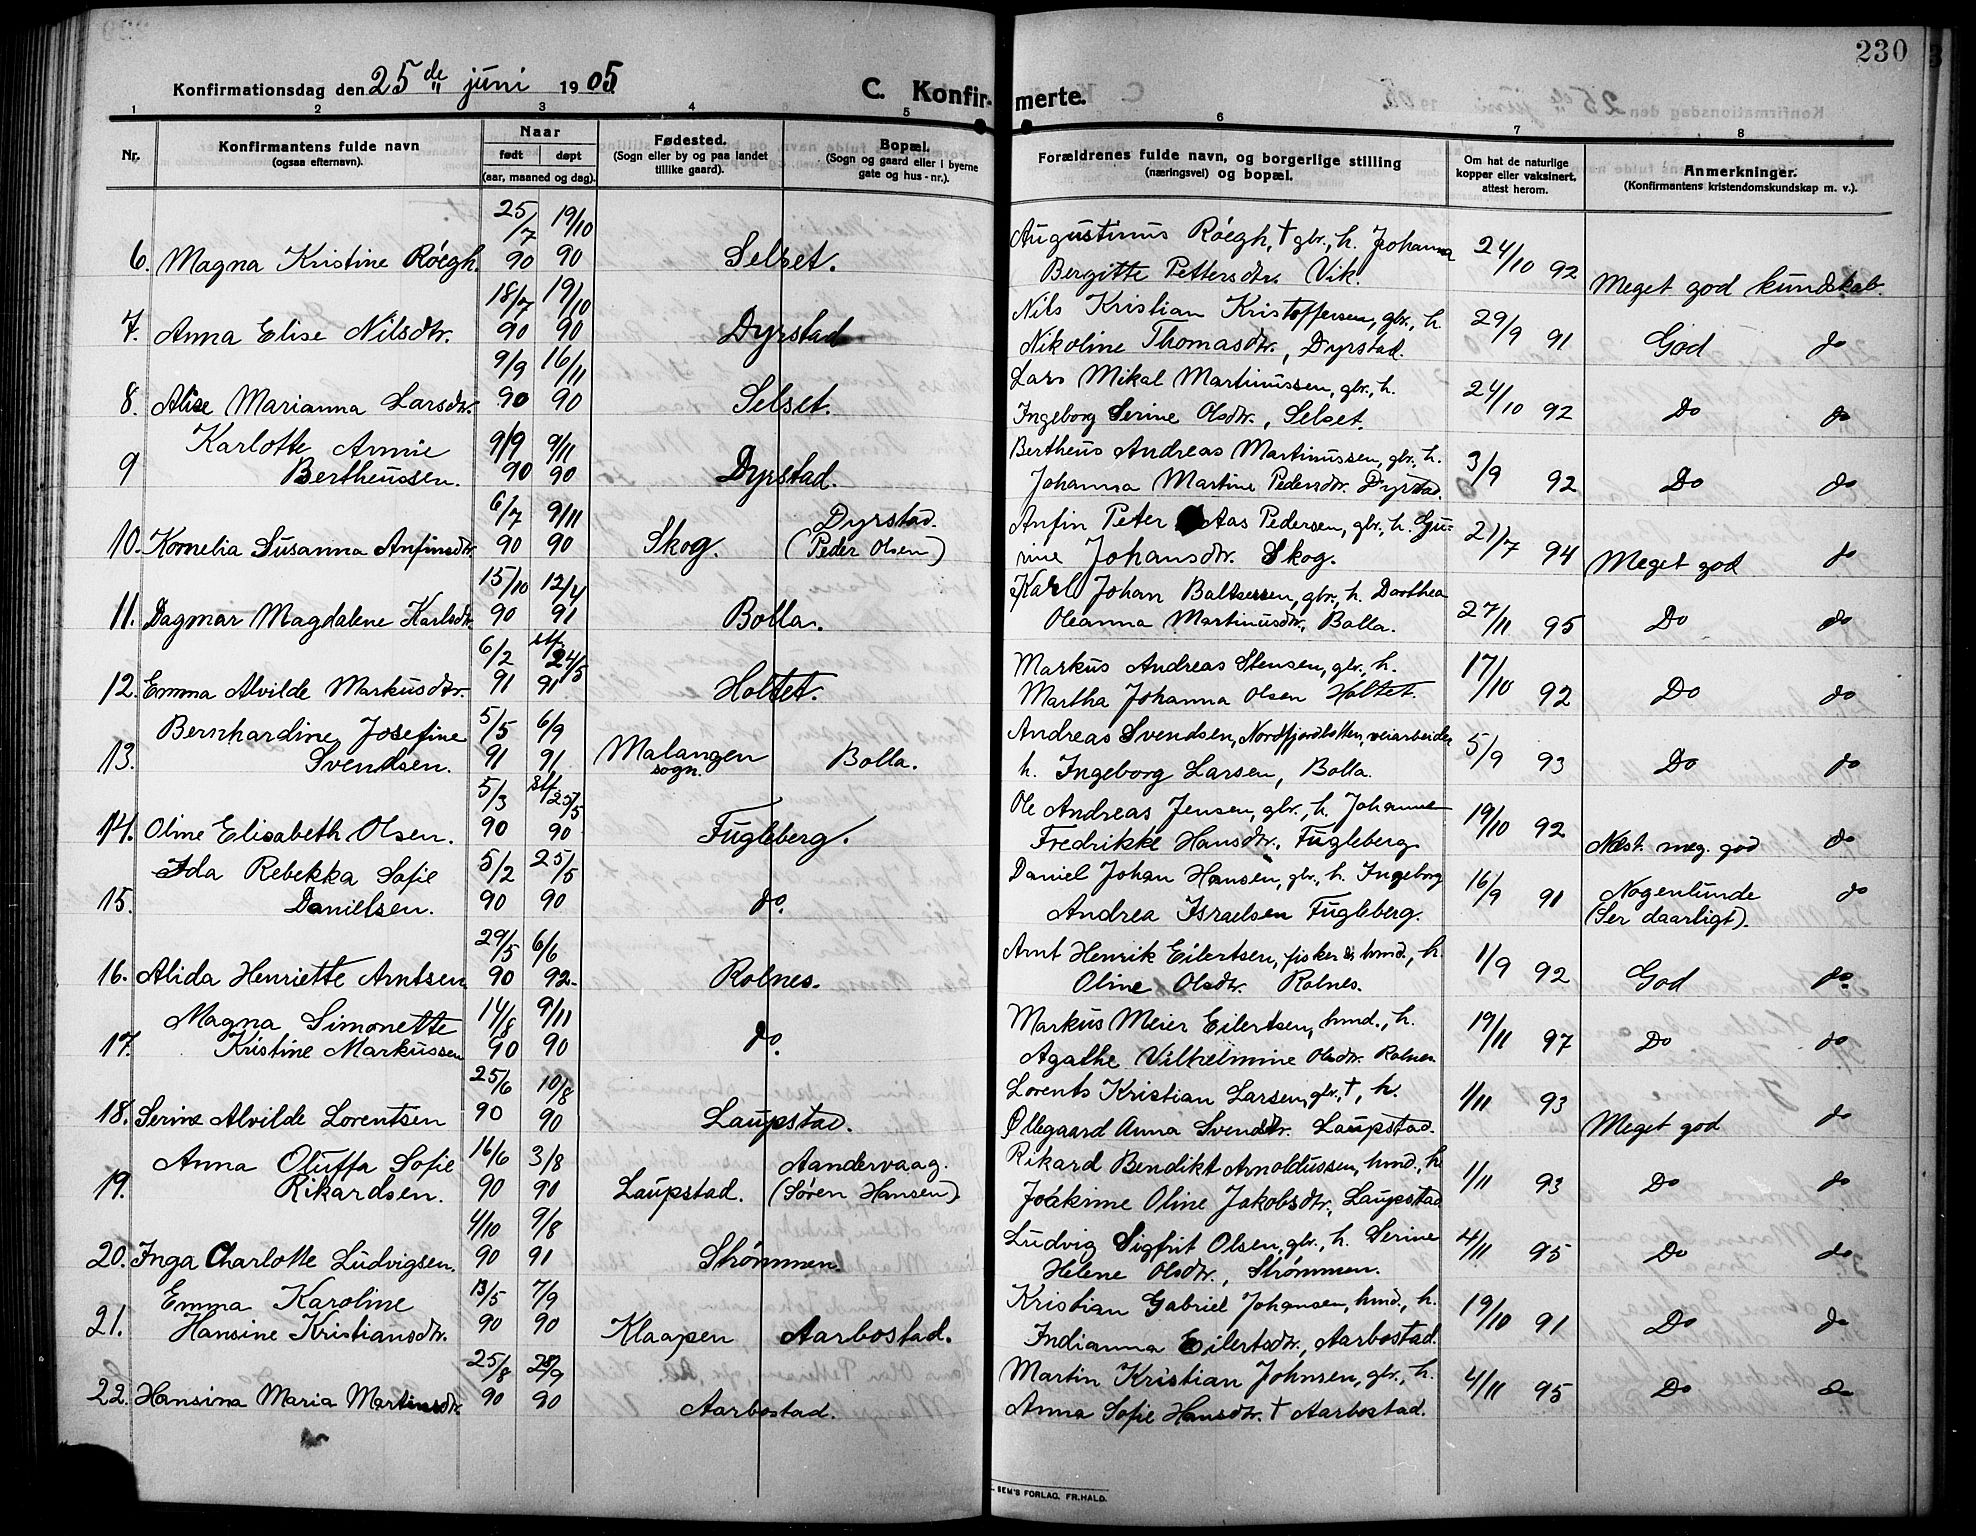 230
Konfirmationsdag den 25de juni 1905.
C. Konfirmerte.
1 2 3 4 5 6 7 8
Nr.
Konfirmantens fulde navn
(ogsaa efternavn).
Naar
født døpt
(aar, maaned og dag).
Fødested.
(Sogn eller by og paa landet
tillike gaard).
Bopæl.
(Sogn og gaard eller i byerne
gate og hus-nr.).
Forældrenes fulde navn, og borgerlige stilling
(næringsvei) og bopæl.
Om hat de naturlige
kopper eller vaksinert,
attest herom.
Anmerkninger.
(Konfirmantens kristendomskundskap m. v.).
25/7 19/10 Augustinus Röegh, † gbr., h. Johanna 24/10
6. Magna Kristine Röegh. 90 90 Selset. Bergitte Pettersdtr. Vik. 92 Meget god kundskab.
18/7 19/10 Nils Kristian Kristoffersen, gbr., h. 29/9
7. Anna Elise Nilsdtr. 90 90 Dyrstad Nikoline Thomasdtr., Dyrstad. 91 God do
9/9 16/11 Lars Mikal Martinussen, gbr., h. 24/10
8. Alise Marianna Larsdtr. 90 90 Selset. Ingeborg Serine Olsdtr., Selset. 92 Do do
Karlotte Annie 9/9 9/11 Bertheus Andreas Martinussen, gbr., h. 3/9
9 Bertheussen. 90 90 Dyrstad. Johanna Martine Pedersdtr. Dyrstad. 92 Do do
6/7 9/11 Dyrstad. Anfin Peter Aas Pedersen, gbr., h. Gu- 21/7
10. Kornelia Susanna Anfinsdtr. 90 90 Skog. (Peder Olsen) rine Johansdtr. Skog. 94 Meget god do
15/10 12/4 Karl Johan Baltsersen, gbr., h. Dorthea 27/11
11. Dagmar Magdalene Karlsdtr. 90 91 Bolla. Oleanna Martinusdtr., Bolla. 95 Do do
6/2 stf 24/5 Markus Andreas Stensen, gbr., h. 17/10
12. Emma Alvilde Markusdtr. 91 91 Holtet. Martha Johanna Olsen Holtet. 92 Do do
Bernhardine Josefine 5/5 6/9 Andreas Svendsen, Nordfjordbotten, veiarbeider 5/9
13. Svendsen. 91 91 Malangen sogn. Bolla. h. Ingeborg Larsen, Bolla. 93 Do do
5/3 stf 25/5 Ole Andreas Jensen, gbr., h. Johanne 19/10
14. Oline Elisabeth Olsen. 90 90 Fugleberg. Fredrikke Hansdtr., Fugleberg. 92 Næst. meg. god do
Ida Rebekka Sofie 5/2 25/5 Daniel Johan Hansen, gbr., h. Ingeborg 16/9 Nogenlunde
15. Danielsen. 90 90 do. Andrea Israelsen Fugleberg. 91 (Ser daarligt). do
29/5 6/6 Arnt Henrik Eilertsen, fisker & hmd., h. 1/9
16. Alida Henriette Arntsen. 90 92 Rolnes. Oline Olsdtr. Rolnes. 92 God do
Magna Simonette 14/8 9/11 Markus Meier Eilertsen, hmd., h. 19/11
17. Kristine Markussen 90 90 do. Agathe Vilhelmine Olsdtr. Rolnes 97 Do do
25/6 10/8 Lorents Kristian Larsen, gbr., †, h. 1/11
18. Serine Alvilde Lorentsen 90 90 Laupstad. Øllegaard Anna Svendsdtr. Laupstad. 93 Meget god do
Anna Oluffa Sofie 16/6 3/8 Aandervaag. Rikard Bendikt Arnoldussen, hmd., h. 1/11
19. Rikardsen. 90 90 Laupstad. (Søren Hansen). Joakime Oline Jakobsdtr., Laupstad 93 Do do
4/10 9/8 Ludvig Sigfrit Olsen, gbr., h. Serine 4/11
20. Inga Charlotte Ludvigsen. 90 91 Strømmen. Helene Olsdtr., Strømmen. 95 Do do
Emma Karoline 13/5 7/9 Kristian Gabriel Johansen, hmd., h. 19/10
21. Hansine Kristiansdtr. 90 90 Klaapen Aarbostad. Indianna Eilertsdtr., Aarbostad. 91 Do do
25/8 28/9 Martin Kristian Johnsen, gbr., h. 4/11
22. Hansina Maria Martinsdtr. 90 90 Aarbostad. Anna Sofie Hansdtr. † Aarbostad. 95 Do Do
SEM'S FORLAG, FR.HALD.